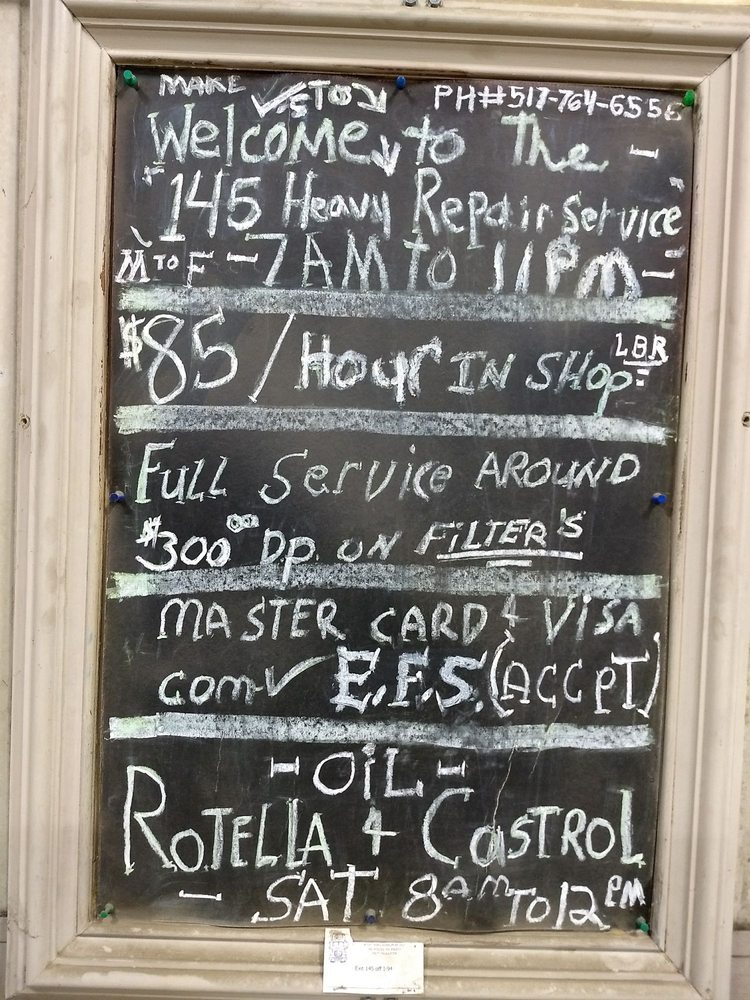 MAKE ✓'S TO PH# 517-764-6556
Welcome to The -
"145 Heavy Repair Service"
M TO F - 7 AM TO 11 PM -
$85 / Hour IN SHOP LBR
Full Service AROUND
$300 00 Dp. ON FILTER'S
MASTER CARD & VISA
com✓ E.F.S. (ACCPT)
- OIL -
ROTELLA & CASTROL
- SAT 8 AM TO 12 PM
Exit 145 off I-94